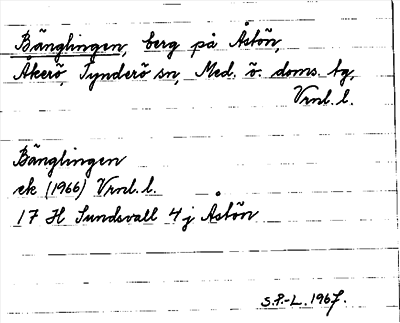 Bänglingen, berg på Åstön,
Åkerö, Tynderö sn, Med. ö. doms. tg,
Vrnl. l.
Bänglingen
ek (1966) Vrnl. l.
17 H Sundsvall 4 j Åstön
S.P.-L. 1967.